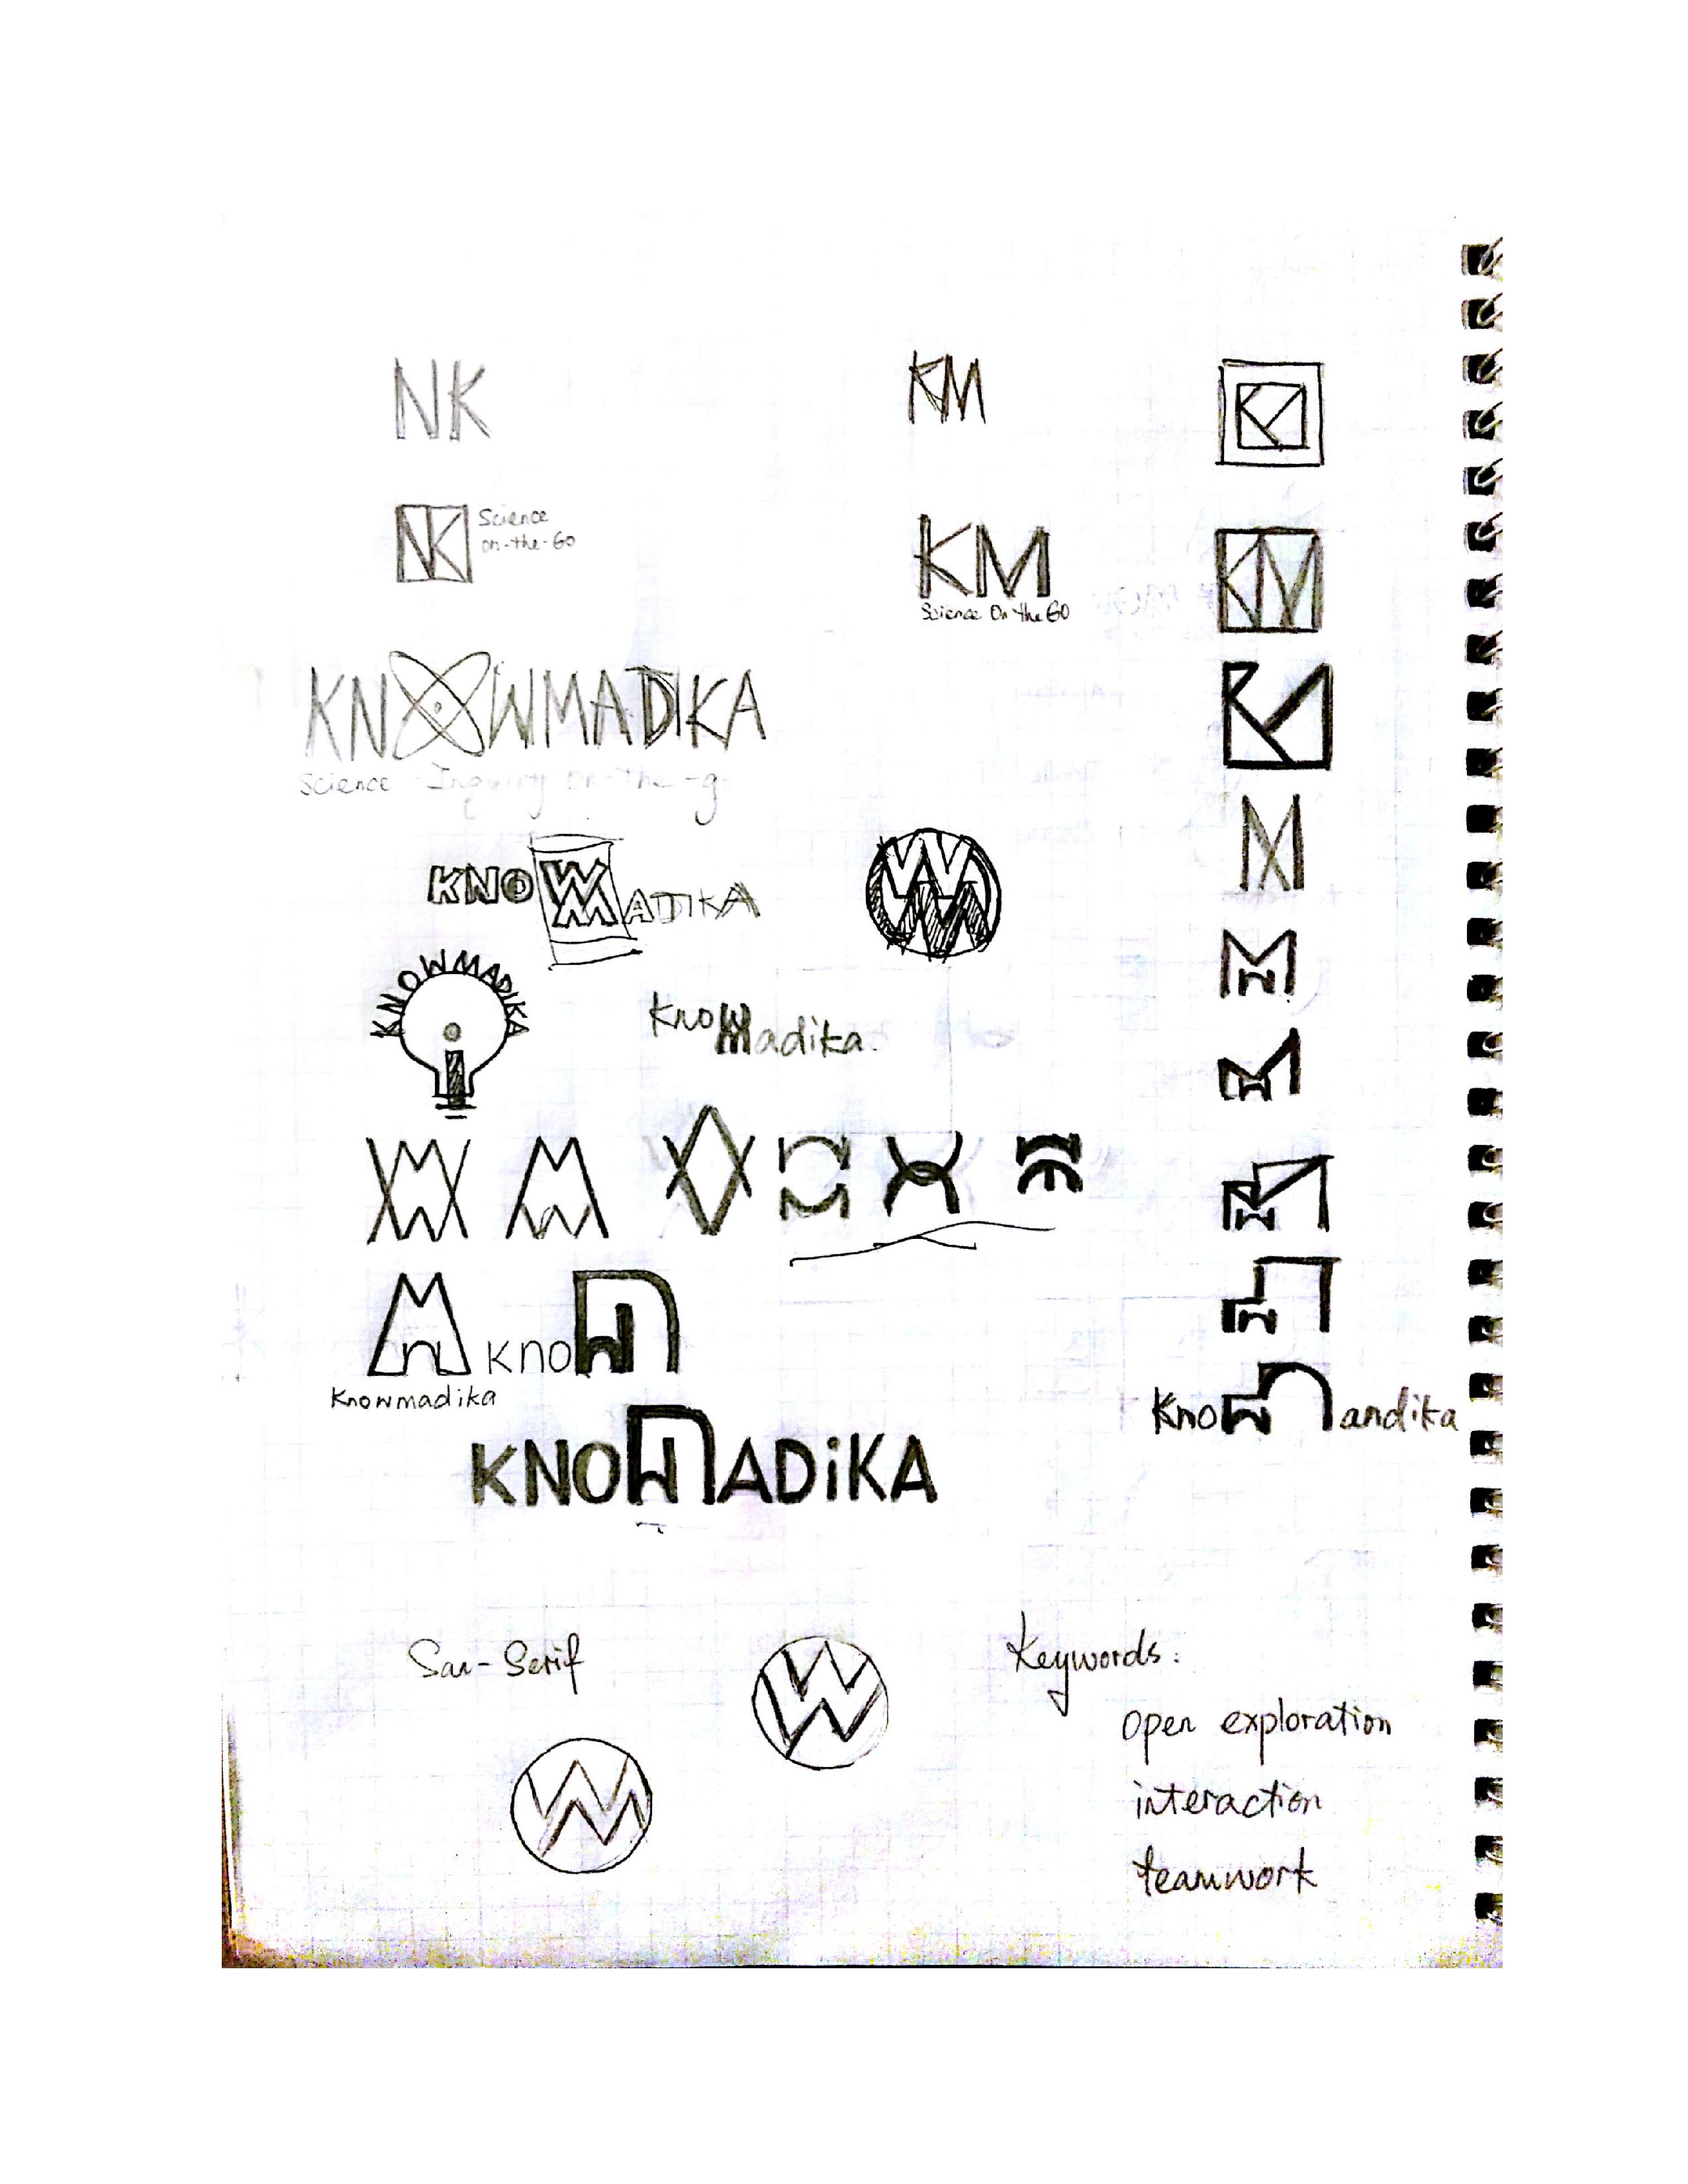 NK
KM
K
NK Science
on-the-Go
KM
Science On the GO
KM
KNOWMADIKA
Science Inquiry on-the-g
M
KNOWMADIKA
WM
M
KNOWMADIKA
KnowMadika.
M
M
KNOW
Knowmadika
Knowmandika
KNOWMADiKA
San-Serif
W
Keywords:
open exploration
WM
interaction
teamwork